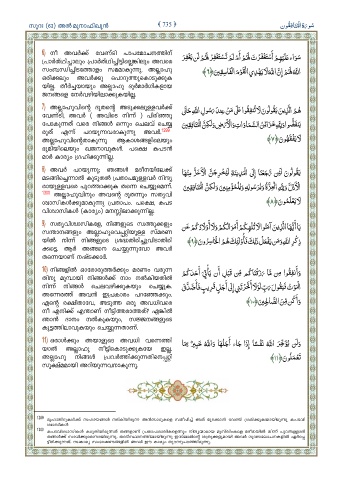 സൂറ (63) അൽമുനാഫിഖൂൻ
{ 735 }
سُورَةُ الْمُنَافِقُون
6) നീ അവർക്ക് വേണ്ടി പാപമോചനത്തിന്
പ്രാർത്ഥിച്ചാലും പ്രാർത്ഥിച്ചിട്ടില്ലെങ്കിലും അവരെ
സംബന്ധിച്ചിടത്തോളം സമമാകുന്നു. അല്ലാഹു
ഒരിക്കലും അവർക്കു പൊറുത്തുകൊടുക്കുക
യില്ല. തീർച്ചയായും അല്ലാഹു ദുർമാർഗികളായ
ജനങ്ങളെ നേർവഴിയിലാക്കുകയില്ല.
سَوَاءٌ عَلَيْهِمْ أَسْتَغْفَرْتَ لَهُمْ أَمْ لَمْ تَسْتَغْفِرْ لَهُمْ لَنْ يَغْفِرَ
اللَّهُ لَهُمْ إِنَّ اللَّهَ لَا يَهْدِي الْقَوْمَ الْفَاسِقِينَ ﴿٦﴾
7) അല്ലാഹുവിന്റെ ദൂതന്റെ അടുക്കലുള്ളവർക്ക്
വേണ്ടി, അവർ ( അവിടെ നിന്ന് ) പിരിഞ്ഞു
പോകുന്നത് വരെ നിങ്ങൾ ഒന്നും ചെലവ് ചെയ്യ
രുത് എന്ന് പറയുന്നവരാകുന്നു അവർ.
അല്ലാഹുവിന്റെതാകുന്നു ആകാശങ്ങളിലെയും
ഭൂമിയിലെയും ഖജനാവുകൾ. പക്ഷെ കപടൻ
മാർ കാര്യം ഗ്രഹിക്കുന്നില്ല.
هُمُ الَّذِينَ يَقُولُونَ لَا تُنْفِقُوا عَلَى مَنْ عِنْدَ رَسُولِ اللَّهِ حَتَّى
يَنْفَضُّوا وَلِلَّهِ خَزَائِنُ السَّمَاوَاتِ وَالْأَرْضِ وَلَكِنَّ الْمُنَافِقِينَ
لَا يَفْقَهُونَ ﴿٧﴾
8) അവർ പറയുന്നു; ഞങ്ങൾ മദീനയിലേക്ക്
മടങ്ങിച്ചെന്നാൽ കൂടുതൽ പ്രതാപമുള്ളവർ നിന്ദ്യ
രായുള്ളവരെ പുറത്താക്കുക തന്നെ ചെയ്യുമെന്ന്.
അല്ലാഹുവിനും അവന്റെ ദൂതന്നും സത്യവി
ശ്വാസികൾക്കുമാകുന്നു പ്രതാപം. പക്ഷെ, കപട
വിശ്വാസികൾ (കാര്യം) മനസ്സിലാക്കുന്നില്ല.
يَقُولُونَ لَئِنْ رَجَعْنَا إِلَى الْمَدِينَةِ لَيُخْرِجَنَّ الْأَعَزُّ مِنْهَا
الْأَذَلَّ وَلِلَّهِ الْعِزَّةُ وَلِرَسُولِهِ وَلِلْمُؤْمِنِينَ وَلَكِنَّ الْمُنَافِقِينَ
لَا يَعْلَمُونَ ﴿٨﴾
9) സത്യവിശ്വാസികളേ, നിങ്ങളുടെ സ്വത്തുക്കളും
സന്താനങ്ങളും അല്ലാഹുവെപ്പറ്റിയുള്ള സ്മരണ
യിൽ നിന്ന് നിങ്ങളുടെ ശ്രദ്ധതിരിച്ചുവിടാതിരി
ക്കട്ടെ. ആർ അങ്ങനെ ചെയ്യുന്നുവോ അവർ
തന്നെയാണ് നഷ്ടക്കാർ.
يَا أَيُّهَا الَّذِينَ آمَنُوا لَا تُلْهِكُمْ أَمْوَالُكُمْ وَلَا أَوْلَادُكُمْ عَنْ
ذِكْرِ اللَّهِ وَمَنْ يَفْعَلْ ذَلِكَ فَأُولَئِكَ هُمُ الْخَاسِرُونَ ﴿٩﴾
10) നിങ്ങളിൽ ഓരോരുത്തർക്കും മരണം വരുന്ന
തിനു മുമ്പായി നിങ്ങൾക്ക് നാം നൽകിയതിൽ
നിന്ന് നിങ്ങൾ ചെലവഴിക്കുകയും ചെയ്യുക.
അന്നേരത്ത് അവൻ ഇപ്രകാരം പറഞ്ഞേക്കും.
എന്റെ രക്ഷിതാവേ, അടുത്ത ഒരു അവധിവരെ
നീ എനിക്ക് എന്താണ് നീട്ടിത്തരാത്തത്? എങ്കിൽ
ഞാൻ ദാനം നൽകുകയും, സജ്ജനങ്ങളുടെ
കൂട്ടത്തിലാവുകയും ചെയ്യുന്നതാണ്.
وَأَنْفِقُوا مِنْ مَا رَزَقْنَاكُمْ مِنْ قَبْلِ أَنْ يَأْتِيَ أَحَدَكُمُ
الْمَوْتُ فَيَقُولَ رَبِّ لَوْلَا أَخَّرْتَنِي إِلَى أَجَلٍ قَرِيبٍ فَأَصَّدَّقَ
وَأَكُنْ مِنَ الصَّالِحِينَ ﴿١٠﴾
11) ഒരാൾക്കും അയാളുടെ അവധി വന്നെത്തി
യാൽ അല്ലാഹു നീട്ടികൊടുക്കുകയേ ഇല്ല.
അല്ലാഹു നിങ്ങൾ പ്രവർത്തിക്കുന്നതിനെപ്പറ്റി
സൂക്ഷ്മമായി അറിയുന്നവനാകുന്നു.
وَلَنْ يُؤَخِّرَ اللَّهُ نَفْسًا إِذَا جَاءَ أَجَلُهَا وَاللَّهُ خَبِيرٌ بِمَا
تَعْمَلُونَ ﴿١١﴾